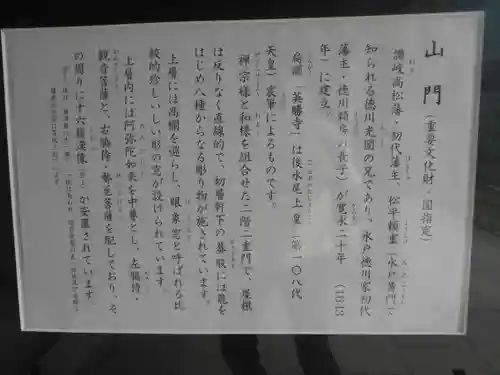 山門（重要文化財・国指定）
讃岐高松藩・初代藩主、松平頼重（水戸黄門で
知られる徳川光圀の兄であり、水戸徳川家初代
藩主・徳川頼房の長子）が寛永二十年（1643
年）に建立。
扁額「英勝寺」は後水尾上皇（第一〇八代
天皇）宸筆によるものです。
禅宗様と和様を組合せた二階二重門で、屋根
は反りなく直線的で、初層軒下の蟇股には龍を
はじめ八種からなる彫り物が施されています。
上層には高欄を廻らし、眼象窓と呼ばれる比
較的珍しいしい形の窓が設けられています。
上層内には阿弥陀如来を中尊とし、左脇侍・
観音菩薩と、右脇侍・勢至菩薩を配しており、そ
の周りに十六羅漢像が安置されています。